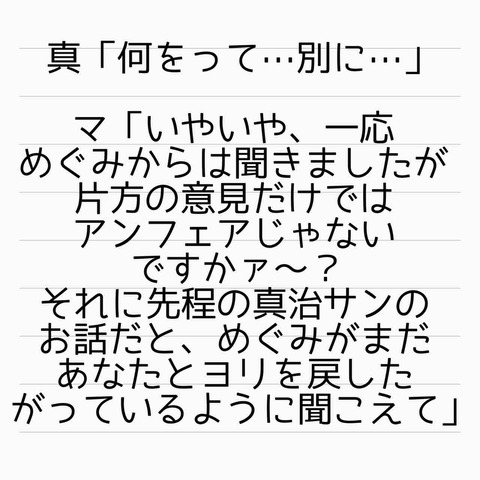 真「何をって…別に…」
マ「いやいや、一応
めぐみからは聞きましたが
片方の意見だけでは
アンフェアじゃない
ですかァ〜？
それに先程の真治サンの
お話だと、めぐみがまだ
あなたとヨリを戻した
がっているように聞こえて」